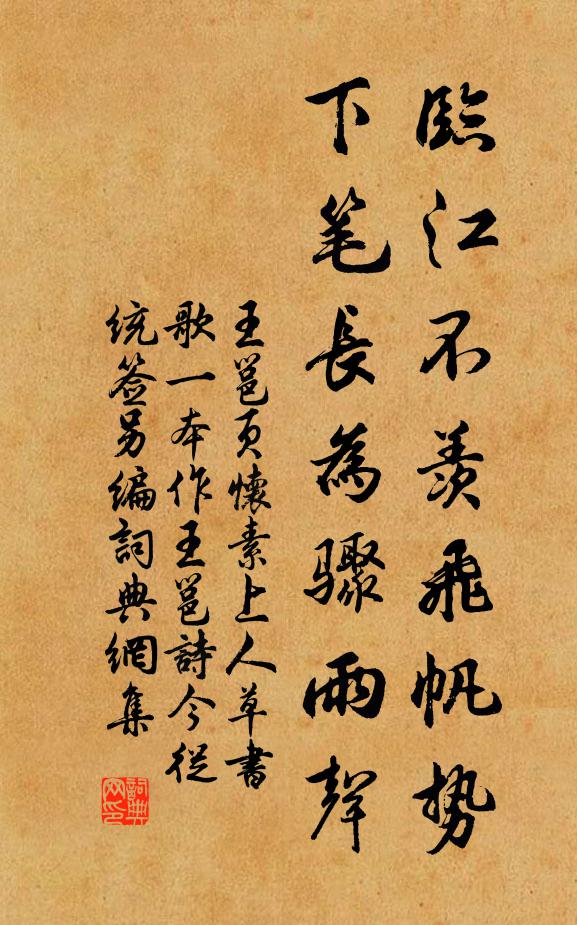 臨江不羨飛帆势
下笔長為驟雨聲
王邕页懷素上人草書
歌一本作王邕詩今從
統签另編詞典網集
詞典网印